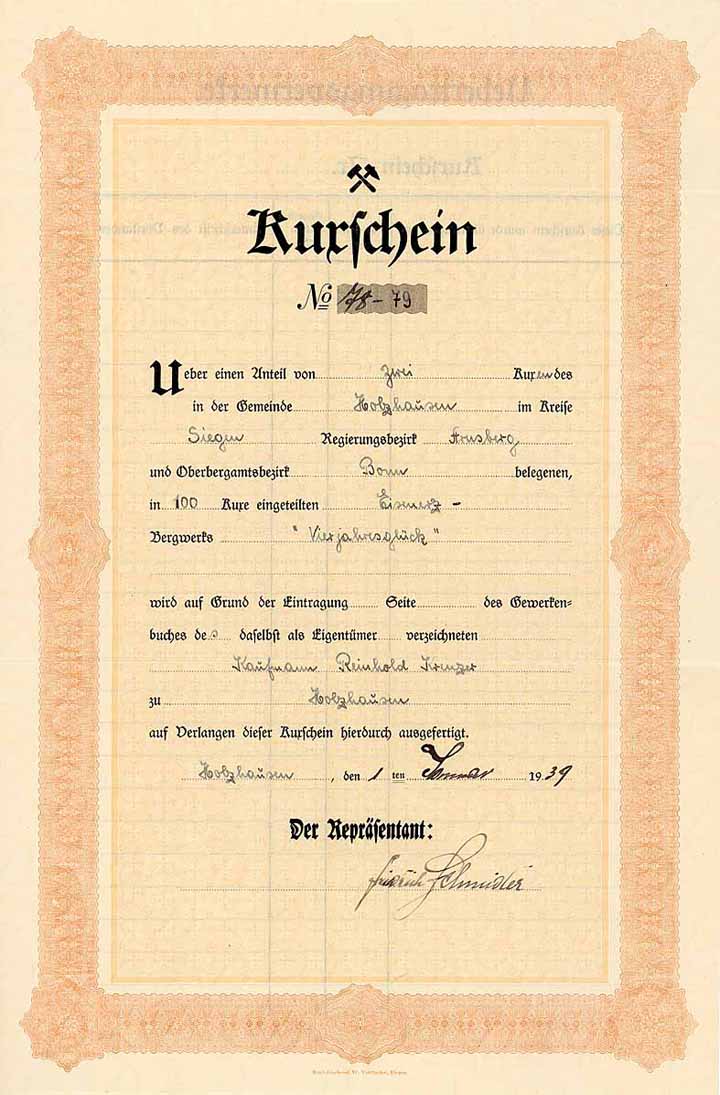 Kuxschein
No 78-79
Ueber einen Anteil von zwei Kuxen des
in der Gemeinde Holzhausen im Kreise
Siegen Regierungsbezirk Arnsberg
und Oberbergamtsbezirk Bonn belegenen,
in 100 Kuxe eingeteilten Eisenerz-
Bergwerks "Vierjahresglück"
wird auf Grund der Eintragung Seite des Gewerken-
buches des daselbst als Eigentümer verzeichneten
Kaufmann Reinhold
zu Holzhausen
auf Verlangen dieser Kuxschein hierdurch ausgefertigt.
Holzhausen, den 1ten Januar 1939
Der Repräsentant:
Friedrich